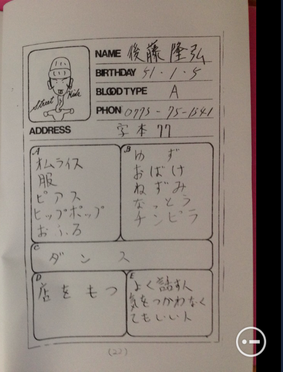 NAME 後藤隆弘
BIRTHDAY 51・1・5
BLOODTYPE A
PHON 0775-75-1541
Street Kids
ADDRESS 字本77
A
オムライス
服
ピアス
ヒップホップ
おふろ
B
ゆず
おばけ
ねずみ
なっとう
チンピラ
C
ダンス
D
店をもつ
E
よく話す人
気をつかわなく
てもいい人
(22)